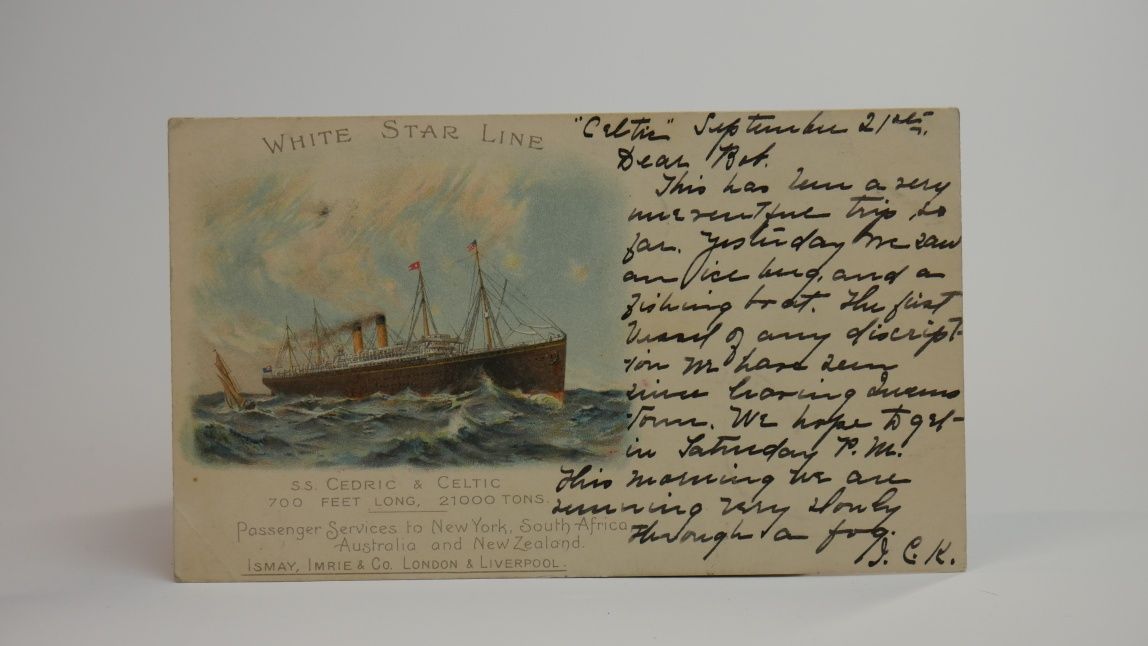 WHITE STAR LINE
"Celtic" September 21st,
Dear Bob.
This has been a very
uneventful trip so
far. Yesterday we saw
an ice berg, and a
fishing boat. The first
vessel of any discript-
ion we have seen
since leaving Queens
Town. We hope to get
in Saturday P.M.
This morning we are
running very slowly
through a fog.
C. K.
S.S. CEDRIC & CELTIC
700 FEET LONG, 21000 TONS.
Passenger Services to New York, South Africa
Australia and New Zealand.
ISMAY, IMRIE & CO. LONDON & LIVERPOOL.